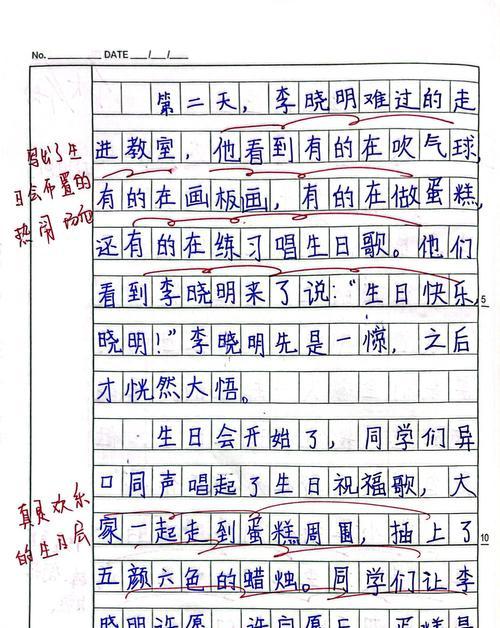 No.
DATE / /
第二天，李晓明难过的走
进教室，他看到有的在吹气球，
有的在画板画，有的在做蛋糕，
还有的在练习唱生日歌。他们
看到李晓明来了说：“生日快乐，
晓明！”李晓明先是一惊，之后
才恍然大悟。
生日会开始了，同学们异
口同声唱起了生日祝福歌，大
家一起走到蛋糕周围，插上了
五颜六色的蜡烛。同学们让李
晓明许愿
写出了生
日会布置的
热闹
真是欢乐
的生日
5
10